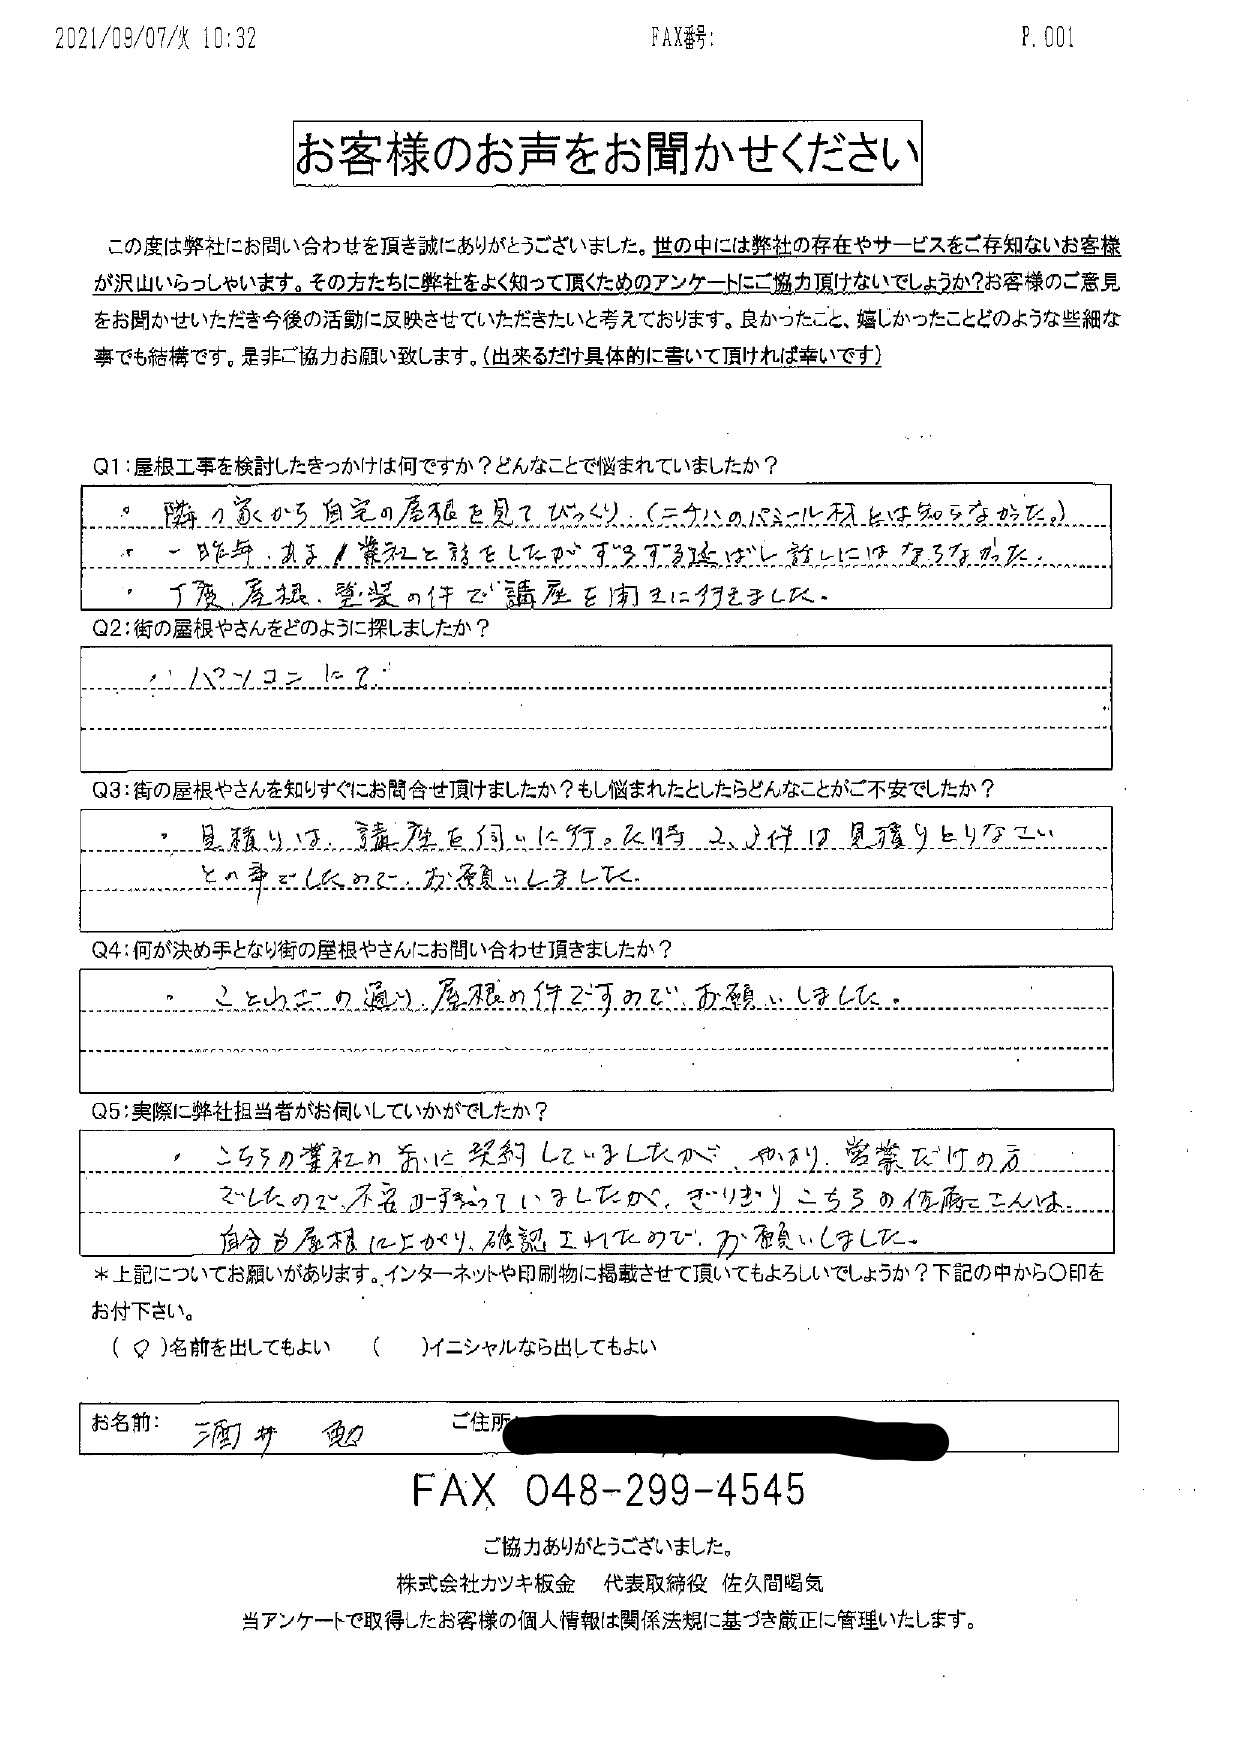 2021/09/07/火 10:32 FAX番号: P.001
お客様のお声をお聞かせください
この度は弊社にお問い合わせを頂き誠にありがとうございました。世の中には弊社の存在やサービスをご存知ないお客様
が沢山いらっしゃいます。その方たちに弊社をよく知って頂くためのアンケートにご協力頂けないでしょうか?お客様のご意見
をお聞かせいただき今後の活動に反映させていただきたいと考えております。良かったこと、嬉しかったことどのような些細な
事でも結構です。是非ご協力お願い致します。(出来るだけ具体的に書いて頂ければ幸いです)
Q1:屋根工事を検討したきっかけは何ですか?どんなことで悩まれていましたか?
・隣の家から自宅の屋根を見てびっくり.(ニチハのパミール材とは知らなかった。)
・一昨年、ある業社と話をしたがずるずる延ばし話しにはならなかった.
・丁度、屋根、塗装の件で講座を聞きに行きました。
Q2:街の屋根やさんをどのように探しましたか?
・パソコンにて.
Q3:街の屋根やさんを知りすぐにお問合せ頂けましたか?もし悩まれたとしたらどんなことがご不安でしたか?
・見積りは、講座を伺いに行った時 2、3件は見積りとりなさい
との事でしたので、お願いしました.
Q4:何が決め手となり街の屋根やさんにお問い合わせ頂きましたか?
・ことわざの通り、屋根の件ですので、お願いしました。
Q5:実際に弊社担当者がお伺いしていかがでしたか?
・こちらの業社の前に契約していましたが、やはり、営業だけの方
でしたので、不安つっていましたが、ぎりぎりこちらの佐藤さんは、
自分も屋根に上がり、確認されたので、お願いしました。
*上記についてお願いがあります。インターネットや印刷物に掲載させて頂いてもよろしいでしょうか?下記の中から〇印を
お付下さい。
(○)名前を出してもよい ( )イニシャルなら出してもよい
お名前: 酒井 勉 ご住所
FAX 048-299-4545
ご協力ありがとうございました。
株式会社カツキ板金 代表取締役 佐久間暘気
当アンケートで取得したお客様の個人情報は関係法規に基づき厳正に管理いたします。